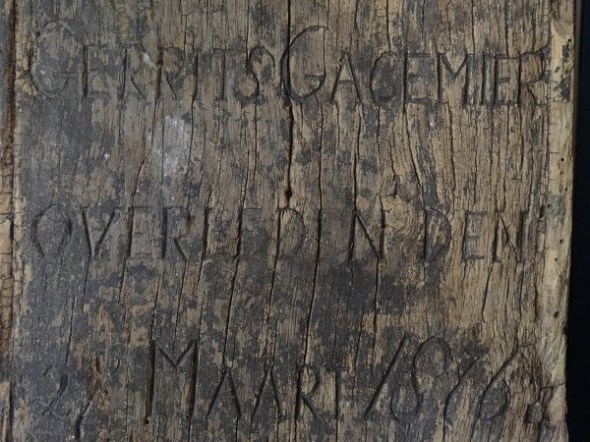 GERRITS GAGEMIER
OVERLEDEN DEN
MAART